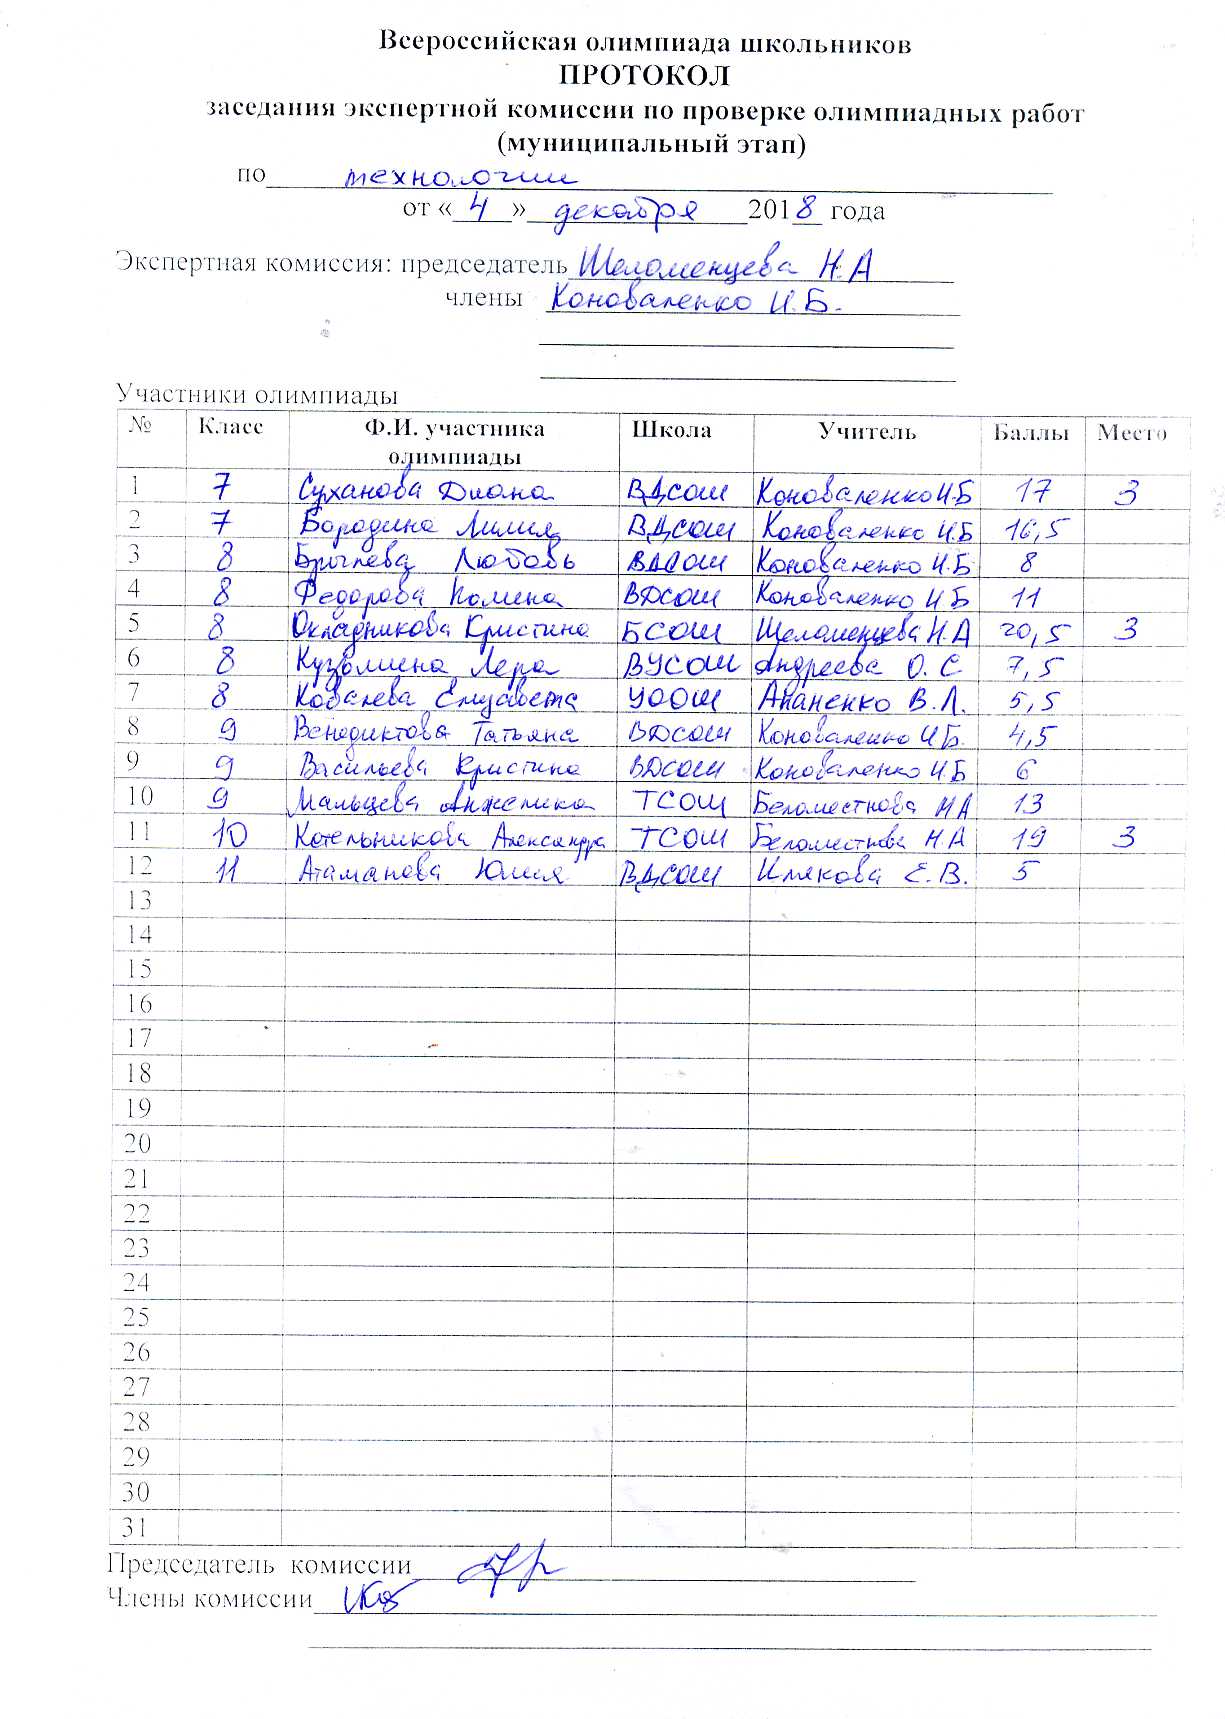 Всероссийская олимпиада школьников
ПРОТОКОЛ
заседания экспертной комиссии по проверке олимпиадных работ
(муниципальный этап)
по технологии
от « 4 » декабря 2018 года
Экспертная комиссия: председатель Шеломенцева Н.А
члены Коноваленко И.Б.
Участники олимпиады
№ Класс Ф.И. участника олимпиады Школа Учитель Баллы Место
1 7 Суханова Диана ВДСОШ Коноваленко И.Б 17 3
2 7 Бородина Лилия ВДСОШ Коноваленко И.Б 16,5
3 8 Брылева Любовь ВДСОШ Коноваленко И.Б 8
4 8 Федорова Полина ВДСОШ Коноваленко И Б 11
5 8 Окладникова Кристина БСОШ Шеломенцева Н.А 20,5 3
6 8 Кузьмина Лера ВУСОШ Андреева О. С 7,5
7 8 Ковалева Елизавета УООШ Апаненко В.Л. 5,5
8 9 Венедиктова Татьяна ВДСОШ Коноваленко И Б. 4,5
9 9 Васильева Кристина ВДСОШ Коноваленко И.Б 6
10 9 Мальцева Анжелика ТСОШ Беломестнова НА 13
11 10 Котельникова Александра ТСОШ Беломестнова Н.А 19 3
12 11 Атаманова Юлия ВДСОШ Е.В. 5
13
14
15
16
17
18
19
20
21
22
23
24
25
26
27
28
29
30
31
Председатель комиссии
Члены комиссии